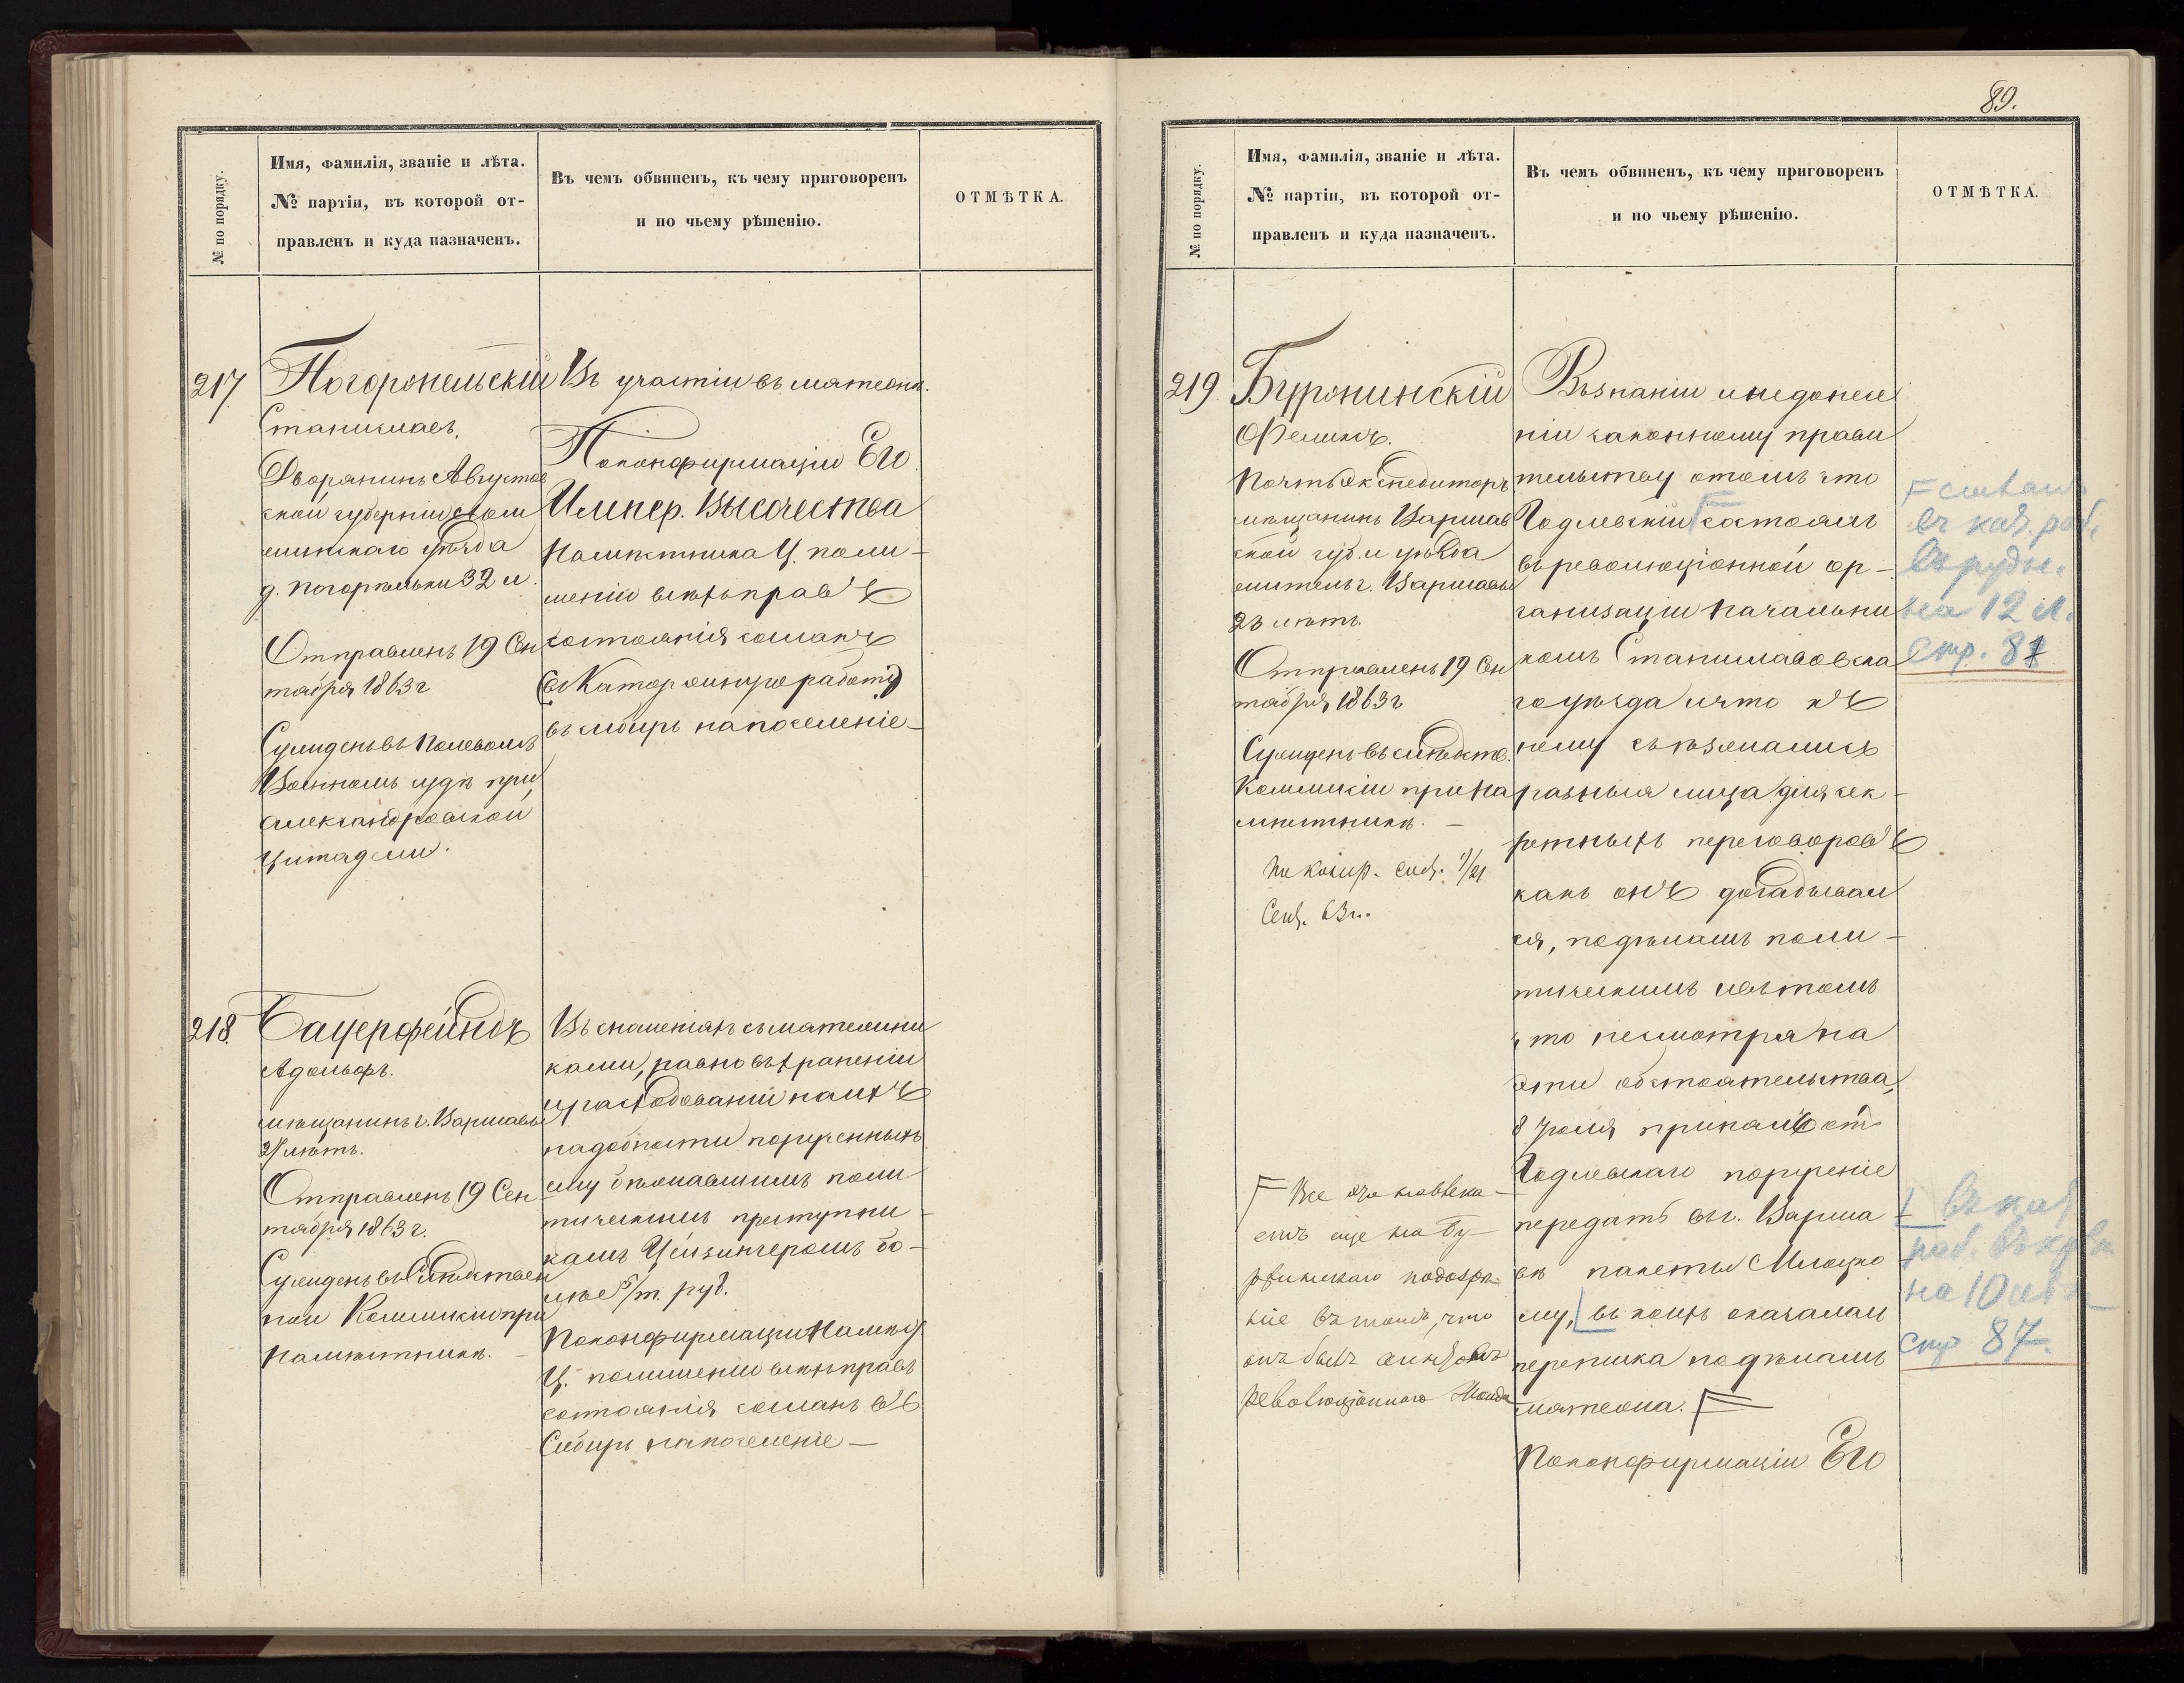 № по порядку.
Имя, фамилія, званіе и лѣта.
№ партіи, въ которой от-
правленъ и куда назначенъ.
Въ чемъ обвиненъ, къ чему приговоренъ
и по чьему рѣшенію.
ОТМѢТКА.
217
Погоржельскій
Станиславъ.
Дворянинъ Августов
ской губерніи Лом
жинскаго уѣзда
д. Погоржельки 32 л.
Отправленъ 19 Сен
тября 1863 г
Сужденъ въ Полевомъ
Военномъ судѣ при
Александровской
Цитадели.
Въ участіи въ мятежѣ.
По конфирмаціи Его
Импер. Высочества
Намѣстника Ц. по ли-
шеніи всѣхъ правъ
состоянія сосланъ
въ Каторжную работу
въ Сибирь на поселеніе
218.
Бауерфейндъ
Адольфъ.
мѣщанинъ г. Варшавы
21 лѣтъ.
Отправленъ 19 Сен
тября 1863 г.
Сужденъ въ Слѣдствен
ной Коммисіи при
Намѣстникѣ.
Въ сношеніяхъ съ мятежни
ками, равно въ храненіи
и расходованіи на ихъ
надобности порученныхъ
ему бѣжавшимъ поли
тическимъ преступни-
комъ Цейзингеромъ бо-
лѣе 5/т. руб.
По конфирмаціи Намѣс
Ц. по лишеніи всѣхъ правъ
состоянія сосланъ въ
Сибирь на поселеніе —
89.
№ по порядку.
Имя, фамилія, званіе и лѣта.
№ партіи, въ которой от-
правленъ и куда назначенъ.
Въ чемъ обвиненъ, къ чему приговоренъ
и по чьему рѣшенію.
ОТМѢТКА.
219
Буржинскій
Феликсъ.
Почтъ Экспедиторъ
мѣщанинъ Варшав
ской губ. и уѣзда
житель г. Варшавы
23 лѣтъ.
Отправленъ 19 Сен
тября 1863 г
Сужденъ въ слѣдств.
Коммисіи при На
мѣстникѣ. —
По конфир. 9/21
Сент. 63 г.
Все это навлека-
етъ еще на Бу-
ржинскаго подозрѣ-
ніе въ томъ, что
онъ былъ агентомъ
революціоннаго Жонда
Въ знаніи и недонесе
ніи законному прави
тельству о томъ что
Годлевскій состоялъ
въ революціонной ор-
ганизаціи начальни
комъ Станиславовска
го уѣзда и что къ
нему съѣзжались
разныя лица для сек-
ретныхъ переговоровъ
какъ онъ догадывал
ся, подъ имъ поли-
тическимъ
что несмотря на
эти обстоятельства,
8 Іюля принялъ отъ
Годлевскаго порученіе
передать въ г. Варша
вѣ пакеты Млоцко
му, въ коихъ оказалась
переписка по дѣламъ
мятежа.
По конфирмаціи Его
сосланъ
въ кат. раб.
въ рудн.
на 12 л.
стр. 87
въ кат
раб. въ крѣп
на 10 лѣтъ
стр 87.